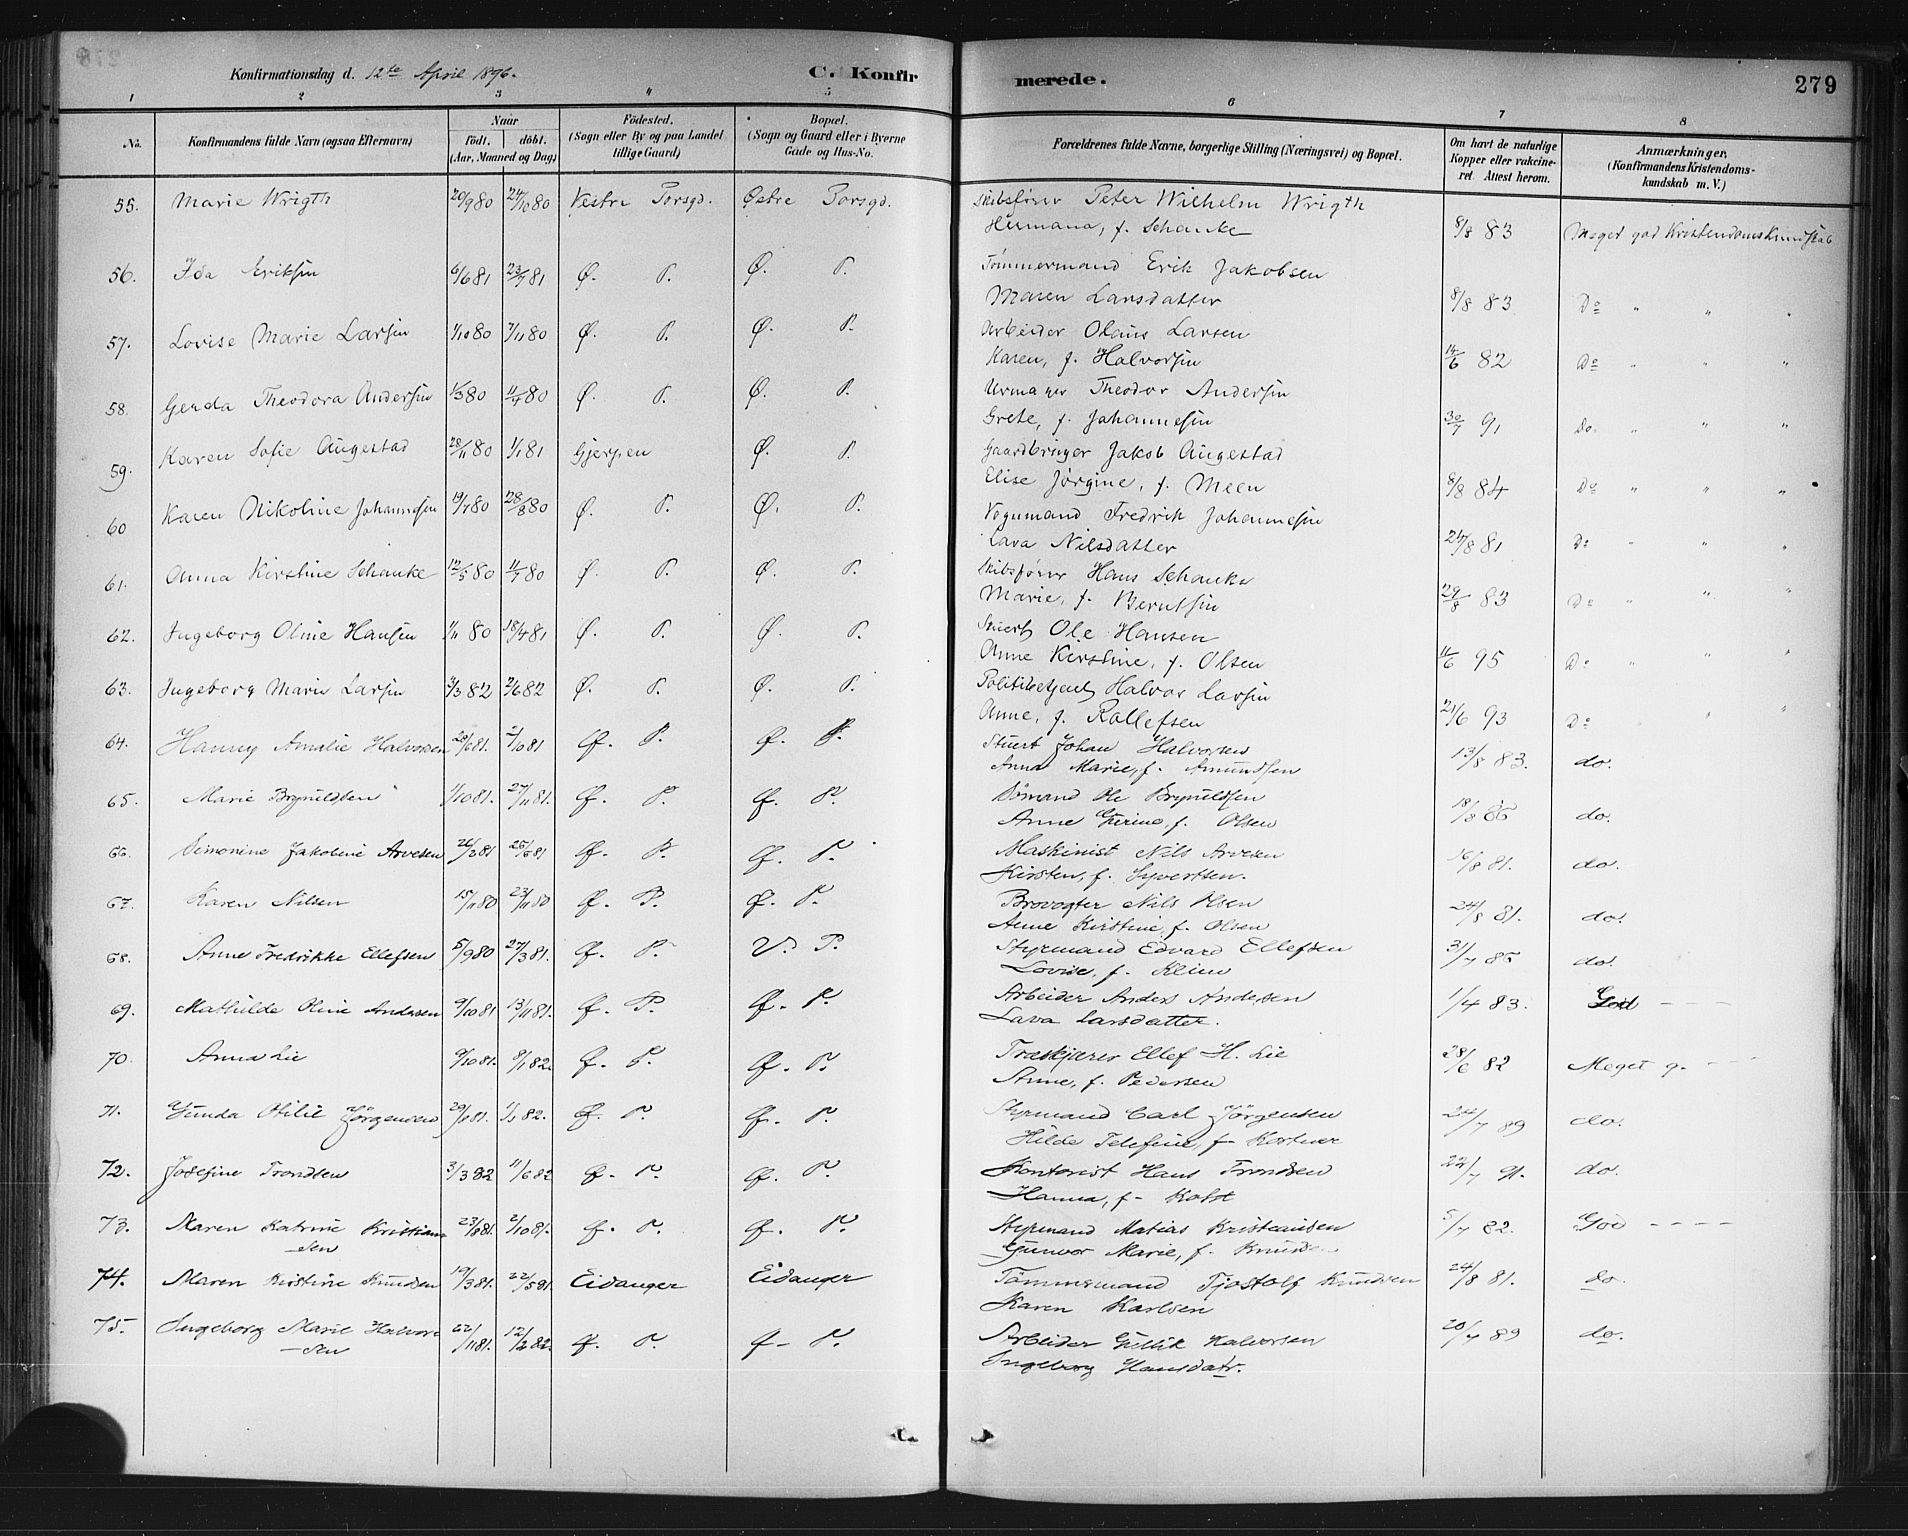 Konfirmationsdag d. 12te April 1896.
C. Konfirmerede.
279
1 2 3 4 5 6 7 8
No.
Konfirmandens fulde Navn (ogsaa Efternavn)
Naar
født. døbt.
(Aar, Maaned og Dag)
Fødested.
(Sogn eller By og paa Landet
tillige Gaard)
Bopæl.
(Sogn og Gaard eller i Byerne
Gade og Hus-No.
Forældrenes fulde Navne, borgerlige Stilling (Næringsvei) og Bopæl.
Om havt de naturlige
Kopper eller vakcine-
ret Attest herom.
Anmærkninger,
(Konfirmandens Kristendoms-
kundskab m. V.)
55. Marie Wrigth 20/9 80 24/10 80 Vestre Porsgd. Østre Porsgd. Skibsfører Peter Wilhelm Wrigth
Hermana, f. Schanke 8/8 83 Meget god Kristendomskundskab
56. Ida Eriksen 6/6 81 23/7 81 Ø. P. Ø. P. Tømmermand Erik Jakobsen
Maren Larsdatter 8/8 83 Do " " "
57. Lovise Marie Larsen 1/10 80 7/11 80 Ø. P. Ø. P. Arbeider Olaus Larsen
Karen, f. Halvorsen 14/6 82 Do " " "
58. Gerda Theodora Andersen 1/3 80 11/7 80 Ø. P. Ø. P. Urmager Theodor Andersen
Grete, f. Johannesen 30/7 91 Do " " "
59. Karen Sofie Augestad 28/11 80 1/1 81 Gjerpen Ø. P. Gaardbruger Jakob Augestad
Elise Jørgine, f. Meen 8/8 84 Do " " "
60 Karen Nikoline Johannesen 19/7 80 28/8 80 Ø. P. Ø. P. Vognmand Fredrik Johannesen
Lava Nilsdatter 24/8 81 Do " " "
61. Anna Kirstine Schanke 12/5 80 11/7 80 Ø. P. Ø. P. Skibsfører Hans Schanke
Marie, f. Berntsen 29/8 83 Do " " "
62. Ingeborg Oline Hansen 1/11 80 18/4 81 Ø. P. Ø. P. Stuert Ole Hansen
Anne Kirstine, f. Olsen 11/6 95 Do " " "
63. Ingeborg Marie Larsen 3/3 82 2/6 82 Ø. P. Ø. P. Politibetjent Halvor Larsen
Anne, f. Rollefsen 21/6 93 Do " "
64. Hanny Amalie Halvorsen 28/6 81. 2/10 81 Ø. P. Ø. P. Stuert Johan Halvorsen
Anna Marie, f. Amundsen 13/8 83. do.
65. Marie Brynildsen 1/10 81. 27/11 81. Ø. P. Ø. P. Sømand Ole Brynildsen
Anne Gurine, f. Olsen 18/8 do.
66. Simonine Jakobine Arvesen 26/2 81 26/6 81 Ø. P. Ø. P. Maskinist Nils Arvesen
Kirsten, f. Syvertsen. 16/8 81. do.
67. Karen Nilsen 15/11 80 23/11 80 Ø. P. Ø. P. Brovogter Nils Olsen
Anne Kirstine, f. Olsen 24/8 81. do.
68. Anne Fredrikke Ellefsen 5/9 80 27/3 81. Ø. P. V. P. Styrmand Edvard Ellefsen
Lovise, f. Klein 31/7 do.
69. Mathilde Oline Andersen 9/10 81 13/11 81. Ø. P. Ø. P. Arbeider Anders Andersen
Lava Larsdatter. 1/4 83. God - - -
70. Anna Lie 9/10 81. 8/1 82. Ø. P. Ø. P. Træskjærer Ellef H. Lie
Anne, f. Pedersen 28/6 82 Meget g. - -
71. Gunda Otilie Jörgensen 82. Ø. P. Ø. P. Styrmand Carl Jörgensen
Hilde f. 24/7 89 do.
72. Josefine Trondsen 3/3 82 11/6 82 Ø. P. Ø. P. Kontorist Hans Trondsen
Hanna, f. 22/7 91. do.
73. Maren Katrine Kristian-
sen 23/8 81. 2/10 81. Ø. P. Ø. P. Styrmand Matias Kristiansen
Gunvor Marie, f. Knudsen 5/7 82. God - - - -
74. Maren Kirstine Knudsen 19/3 81. 22/5 81. Eidanger Eidanger Tømmermand Tjostolf Knudsen
Karen Karlsen 24/8 81. do.
75. Ingeborg Marie Halvor-
sen 22/11 81. 12/2 82. Ø. P. Ø. P. Arbeider Gullik Halvorsen
Ingeborg Hansdatr. 20/7 89 do.